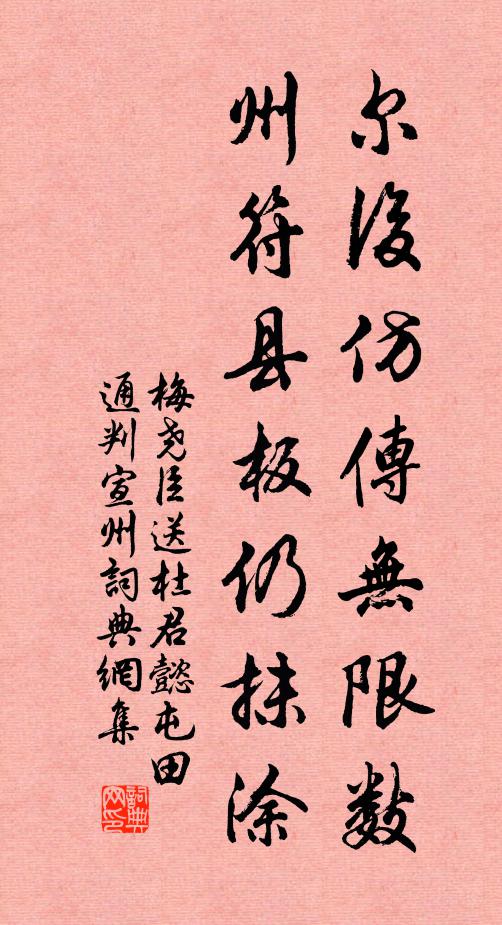 尔後仿傳無限數
州符县板仍抹涂
梅尧臣送杜君懿屯田
通判宣州詞典網集
詞典
网印